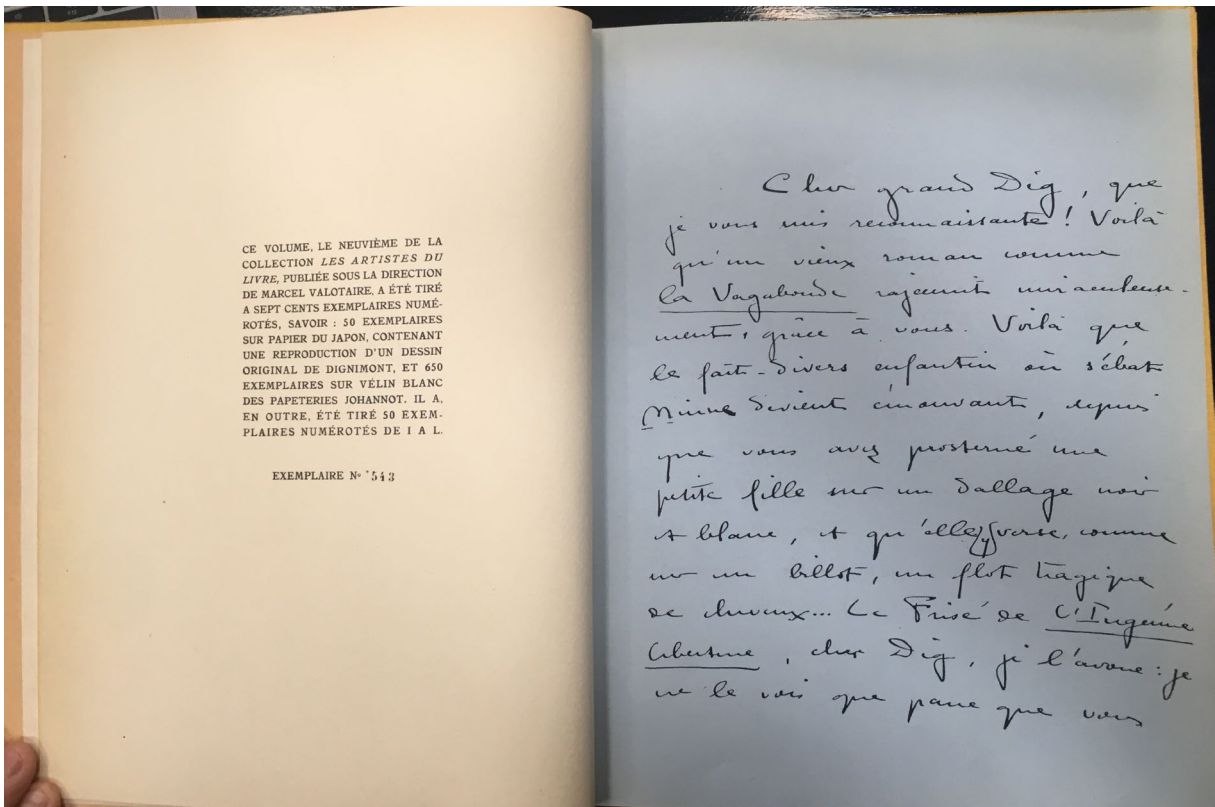 CE VOLUME, LE NEUVIÈME DE LA
COLLECTION LES ARTISTES DU
LIVRE, PUBLIÉE SOUS LA DIRECTION
DE MARCEL VALOTAIRE, A ÉTÉ TIRÉ
A SEPT CENTS EXEMPLAIRES NUMÉ-
ROTÉS, SAVOIR : 50 EXEMPLAIRES
SUR PAPIER DU JAPON, CONTENANT
UNE REPRODUCTION D'UN DESSIN
ORIGINAL DE DIGNIMONT, ET 650
EXEMPLAIRES SUR VÉLIN BLANC
DES PAPETERIES JOHANNOT. IL A,
EN OUTRE, ÉTÉ TIRÉ 50 EXEM-
PLAIRES NUMÉROTÉS DE I A L.
EXEMPLAIRE No 543
Cher grand Dig, que
je vous suis reconnaissante ! Voilà
qu'un vieux roman comme
la Vagabonde rajeunit miraculeuse-
ment, grâce à vous. Voilà que
le fait-divers enfantin où s'ébat
Minne devient émouvant, depuis
que vous avez prosterné une
petite fille sur un dallage noir
et blanc, et qu'elle y verse, comme
sur un billot, un flot tragique
de cheveux... Le Frisé de L'Ingénue
libertine, cher Dig, je l'avoue : je
ne le vois que parce que vous